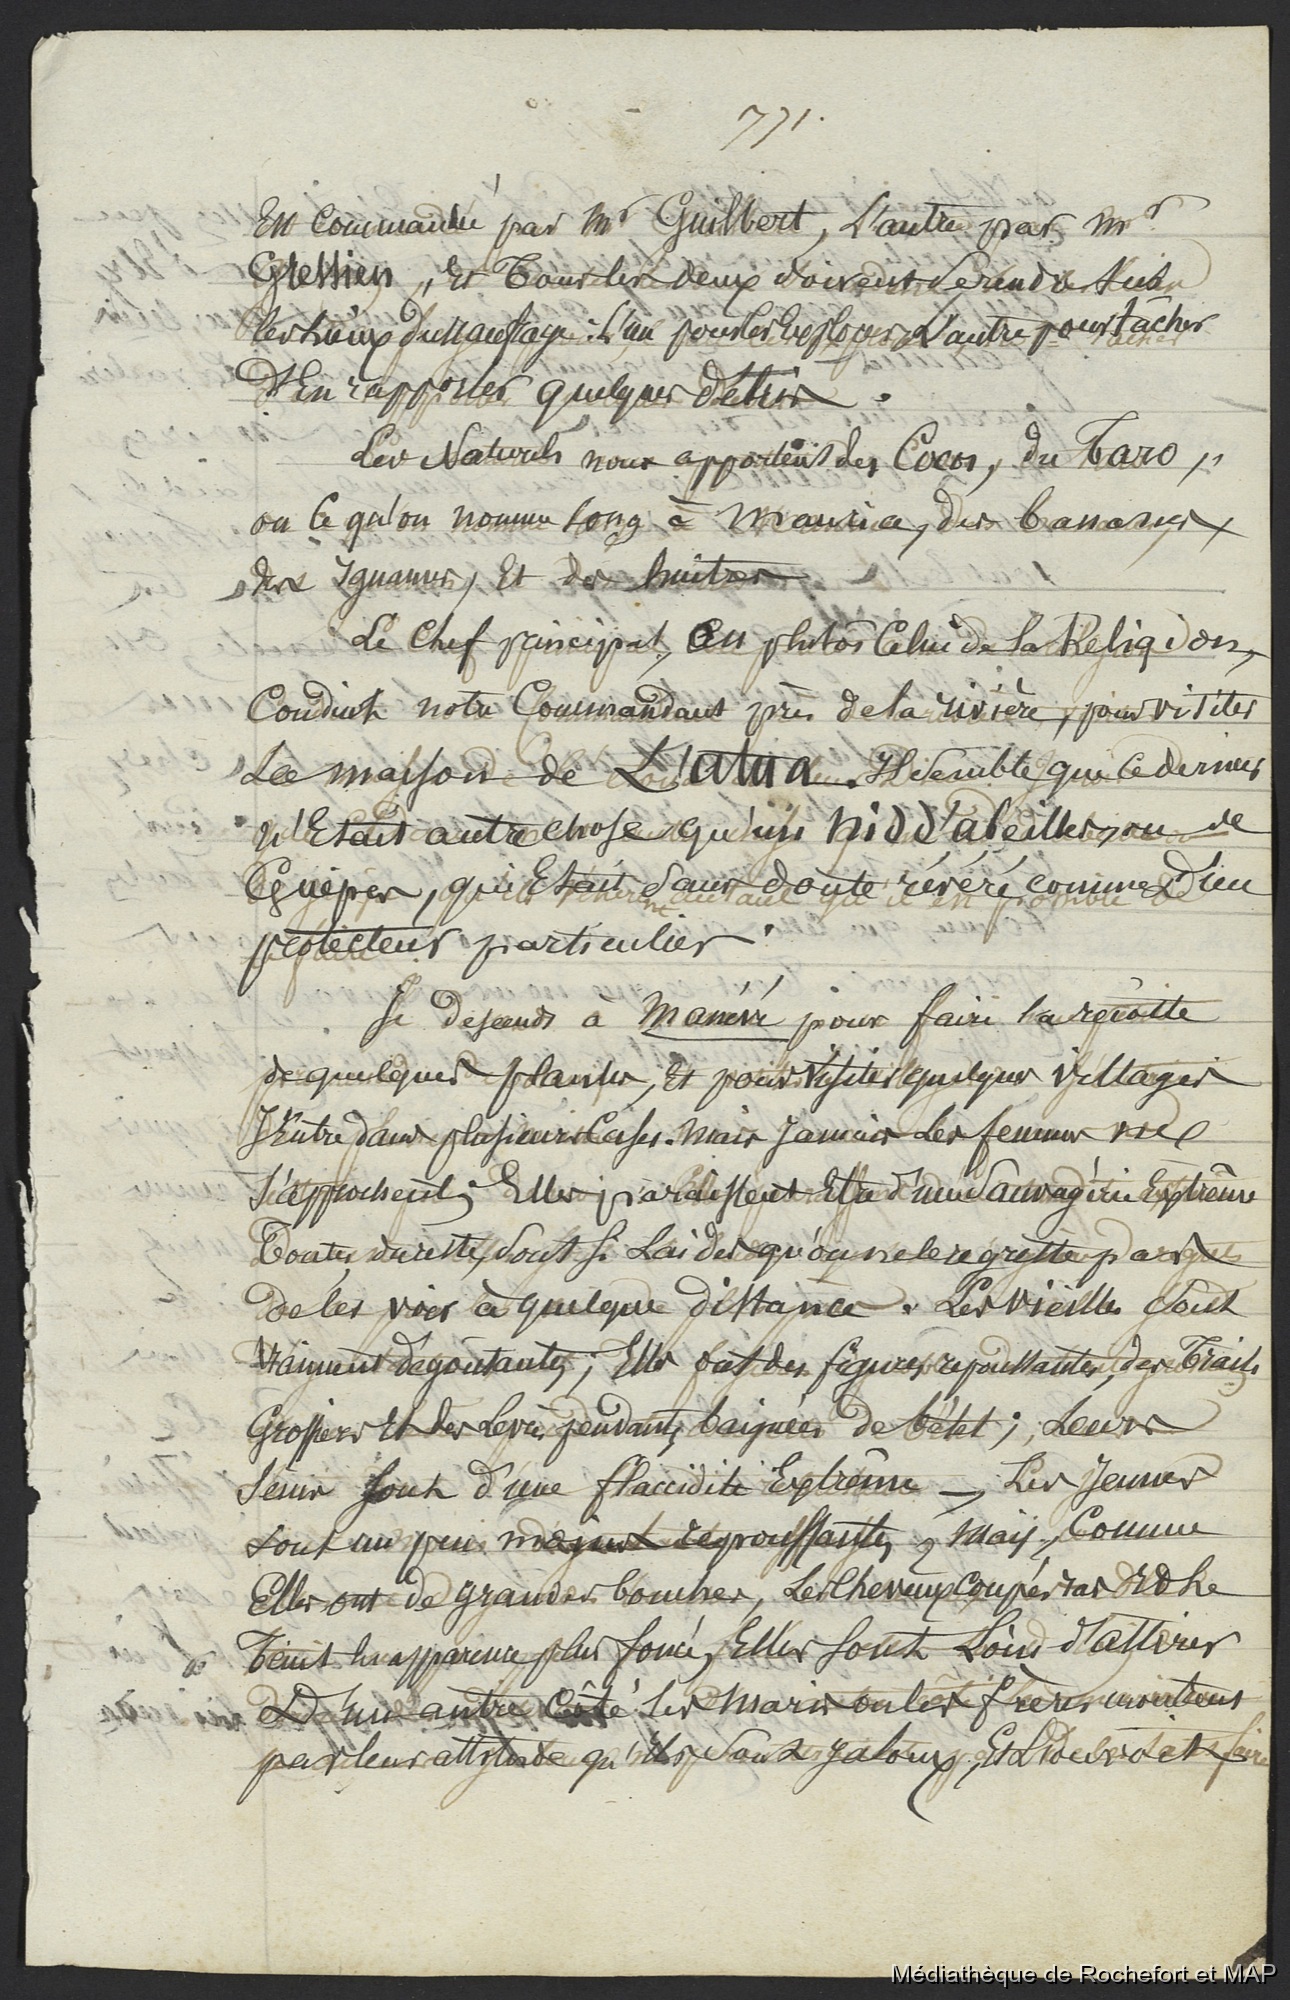 771.
Est Commandé par Mr Guilbert, L'autre par Mr
Gressien, Et Tous les deux doivent se rendre sur
les Lieux du naufrage : L'un pour les Explorer, L'autre pour tâcher
D'En rapporter quelques débris.
Les Naturels nous apportent des Cocos, du Taro,
ou ce qu'on nomme song à Maurice, des bananes,
des Ignames, Et des huîtres
Le Chef principal, ou plutôt Celui de la Religion,
Conduit notre Commandant près de la rivière, pour visiter
La maison de L'atua. Il semble que ce dernier
n'Etait autre chose qu'un nid d'abeilles, ou de
Guêpes, qui Etait sans doute révéré comme Dieu
protecteur particulier.
Je descends à Manévé pour faire la récolte
de quelques plantes, Et pour visiter quelques villages
J'entre dans plusieurs Cases. Mais Jamais Les femmes ne
s'approchent; Elles paraissent Etre d'une Sauvagerie Extrême
Toutes, du reste, sont si Laides qu'on ne le regrette pas
de les voir à quelque distance. Les vieilles sont
vraiment dégoûtantes; Elles ont des figures repoussantes, des Traits
Grossiers Et des Levres pendantes baignées de bétel; Leurs
seins sont d'une flaccidité Extrême — Les Jeunes
sont un peu moins repoussantes, Mais, Comme
Elles ont de grandes bouches, Les Cheveux coupés ras Et le
Teint en apparence plus foncé, Elles sont Loin d'attirer
D'un autre Côté les Maris ou les frères montrent
par leur attitude qu'ils sont Jaloux, Et